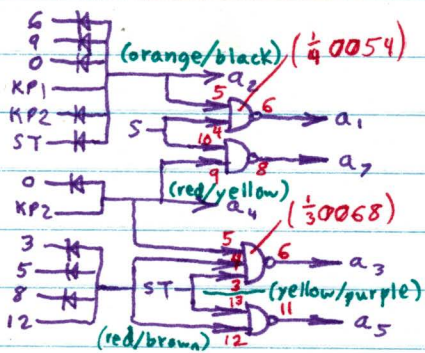 6
9
0
KP1
KP2
ST
(orange/black)
(1/4 0054)
a2
5
6
4
a1
S
10
8
9
a7
(red/yellow)
0
KP2
a4
(1/3 0068)
5
6
4
3
a3
3
5
8
12
ST
(yellow/purple)
13
11
12
a5
(red/brown)